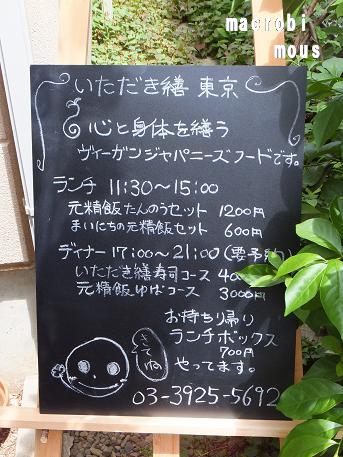 macrobi
mous
いただき繕 東京
心と身体を繕う
ヴィーガンジャパニーズフードです。
ランチ 11:30～15:00
元精飯たんのうセット 1200円
まいにちの元精飯セット 600円
ディナー 17:00～21:00(要予
いただき繕寿司コース 40
元精飯ゆばコース 3000円
お持ち帰り
ランチボックス
700円
やってます。
きてね
03-3925-5692